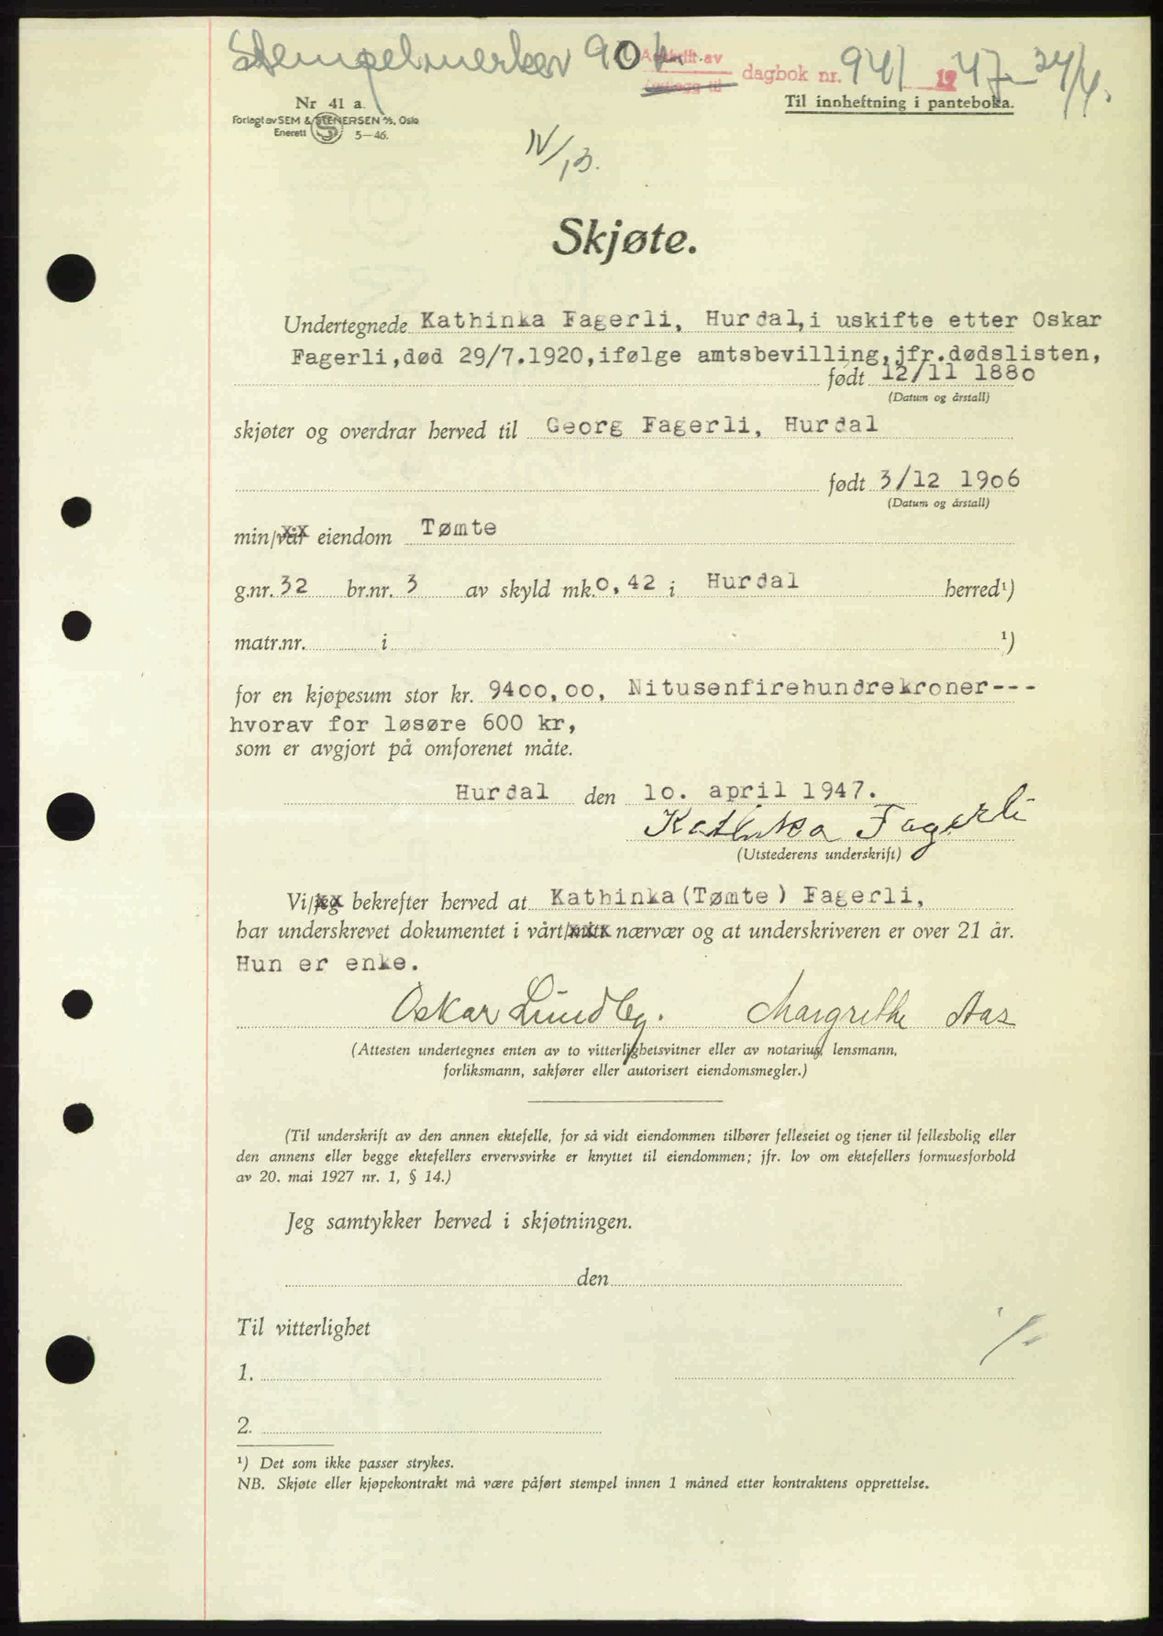 Stempelmerker 90 kr. Avskrift av dagbok nr. 941 1947 24/4.
Nr 41 a.
Til innheftning i panteboka.
Forlegt av SEM & STENERSEN A/S, Oslo
Enerett 5-46.
IV/13.
Skjøte.
Undertegnede Kathinka Fagerli, Hurdal, i uskifte etter Oskar
Fagerli, død 29/7.1920, ifølge amtsbevilling, jfr. dødslisten,
født 12/11 1880
(Datum og årstall)
skjøter og overdrar herved til Georg Fagerli, Hurdal
født 3/12 1906
(Datum og årstall)
min/vår eiendom Tømte
g.nr. 32 br.nr. 3 av skyld mk. 0,42 i Hurdal herred¹)
matr.nr. i ¹)
for en kjøpesum stor kr. 9400,00, Nitusenfirehundrekroner---
hvorav for løsøre 600 kr,
som er avgjort på omforenet måte.
Hurdal den 10. april 1947.
Kathinka Fagerli
(Utstederens underskrift)
Vi/jeg bekrefter herved at Kathinka (Tømte) Fagerli,
har underskrevet dokumentet i vårt/mitt nærvær og at underskriveren er over 21 år.
Hun er enke.
Oskar Lundby. Margrethe Aas
(Attesten undertegnes enten av to vitterlighetsvitner eller av notarius, lensmann,
forliksmann, sakfører eller autorisert eiendomsmegler.)
(Til underskrift av den annen ektefelle, for så vidt eiendommen tilhører felleseiet og tjener til fellesbolig eller
den annens eller begge ektefellers ervervsvirke er knyttet til eiendommen; jfr. lov om ektefellers formuesforhold
av 20. mai 1927 nr. 1, § 14.)
Jeg samtykker herved i skjøtningen.
den
Til vitterlighet
1.
2.
¹) Det som ikke passer strykes.
NB. Skjøte eller kjøpekontrakt må være påført stempel innen 1 måned etter kontraktens opprettelse.